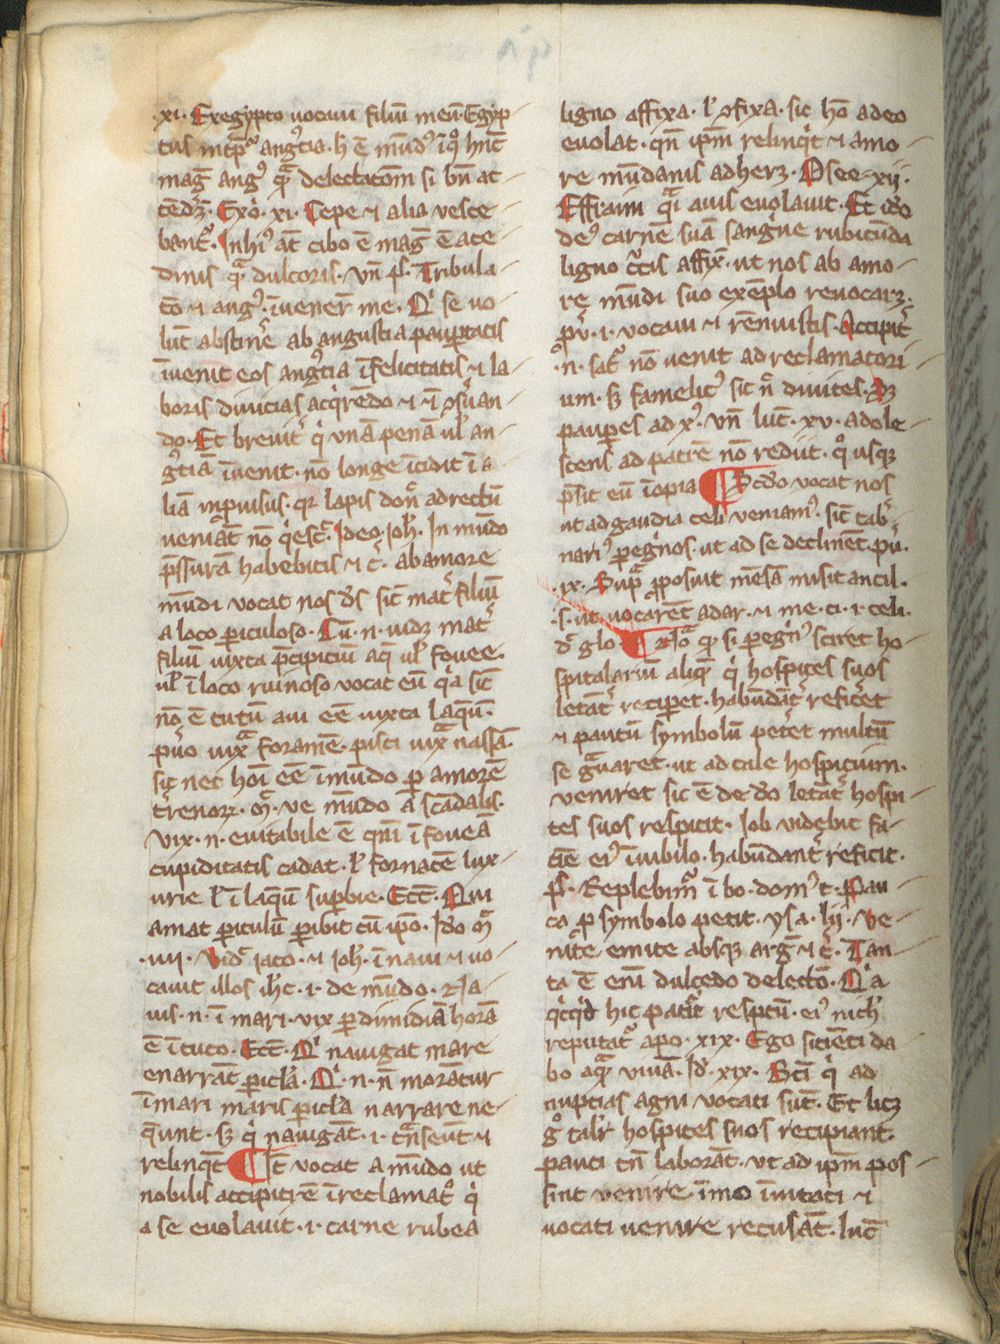 .xi. Exegypto uocaui filiū meū. Egyp
tus int̄p̄r ang'tia. h̄ ē mūd' ī q° hn̄t
maḡ ang' q̄ delectac̄oīm si bn̄ at
tēdr̄. Exo. xi. Cepe ⁊ alia uesce
bant'. Inhi' at̄ cibo ē maḡ ē ace
dinis q̄ dulcoris. vn̄ ps. Tribula
c̄o ⁊ ang'. īuener̄ me. Qi se uo
lūt abstinē ab angustia paup̄tatis
īuenit eos ang'tia īfelicitatis ⁊ la
boris diuicias acq'rēdo ⁊ ī ꝯs'uan
do. Et breuit' q' vnā penā ul' an
g'tiā īuenit. nō longe īcidit ī a
liā inpuisus. qr lapis don̄ ad rectū
ueniat nō q'escit. Ideo Joh'. In mūdo
p̄ssurā habebitis ⁊ c'. ab amore
mūdi vocat nos d's sic̄ mat' filiū
a loco p̄iculoso. Cū. n. uidz mat'
filiū iuxta p̄cipiciū aq̄ ul' fouee.
ul' ī loco ruinoso vocat eū q'a sic̄
nō ē tutū aui eē iuxta laq̄ū.
puo iux̄ foramē. pisci iux̄ nassā.
sic nec hoī eē ī mūdo p̄ amorē
t'renoꝝ. m̄. ve mūdo a scādalis.
vix. n. euitabile ē qui ī foueā
cupiditatis cadat. l' fornacē lux
urie l' ī laq̄ū sup̄bie. Ecc̄. Qui
amat p̄iculū p̄ibit cū ip̄o. Ido m̄
.iiii. Vid' iaco. ⁊ ioh'. ī naui ⁊ uo
cauit illos ih'c. i. de mūdo. Na
uis. n. ī mari. vix p̄ dimidiā horā
ē ī tuto. Ecc̄. Qi nauigāt mare
enarrāt p̄icl'a. Qi. n. n̄ morātur
ī mari maris p̄icl'a narrare ne
q̄unt. sꝫ q' nauigāt. i. t̄nseūt ⁊
relinq̄t ¶ It̄ vocat a mūdo ut
nobilis accipit'ē ī reclamat° q'
a se euolauit. i. carne rubea
ligno affixa. l' ꝯfixa. sic hō adeo
euolat. qn̄ ip̄m relinq't ⁊ amo
re mūdanis adherꝫ. Osee. xii.
Effraim q̄i auis euolauit. Et ido
de' carnē suā sanguīe rubicūda
ligno c'cis affix̄. ut nos ab amo
re mūdi suo exēplo reuocarꝫ.
pu'. i. vocaui ⁊ rēnuistis. Accipit'
.n. sat' nō uenit ad reclamatori
um. sꝫ famelic' sic n̄ diuites. sꝫ
paup̄es ad x'. vn̄ luc̄. xv. adole
scens ad patrē nō rediit. q° usqꝫ
p̄sit eū īopia ¶ Scd'o vocat nos
ut ad gaudia celi veniam'. sic̄ tab'
nari' p̄eg'nos. ut ad se declinēt. pu'.
ix. Sup̄ p̄posuit mēsā misit ancil.
.s. ut uocarēt ad ar. ⁊ me. ci. i. celi.
d' glo ¶ Nō q̄ si p̄eg'n' sciret ho
spitalariū aliq̄ q' hospites suos
letāt' recip̄et. habūdāt' reficēt
⁊ paruū symbolū petēt multū
se ḡuaret. ut ad tale hospiciuim.
veniret sic ē de d'o letāt' hospi
tes suos respicit. Iob videbit fa
ciē ei' ī iubilo. habūdant' reficit.
ps. Replebim' ī bo. dom' t. Pau
ca p̄ symbolo petit. ysa. lii. Ve
nite emite absqꝫ arḡ ⁊ c'. Tan
ta ē enī dulcedo delectō. Qi a
q'cq'd hic patit' resptū. ei' nich'
reputat' apo. xix. Ego sitiēti da
bo aq̄ viuā. Id'. xix. Bti q' ad
nuptias agni vocati sūt. Et licꝫ
g° talr' hospites suos recipiant.
pauci tn̄ laborāt. ut ad ip̄m pos
sint uenire. īmo īuitati ⁊
vocati uenire recusāt. luc̄